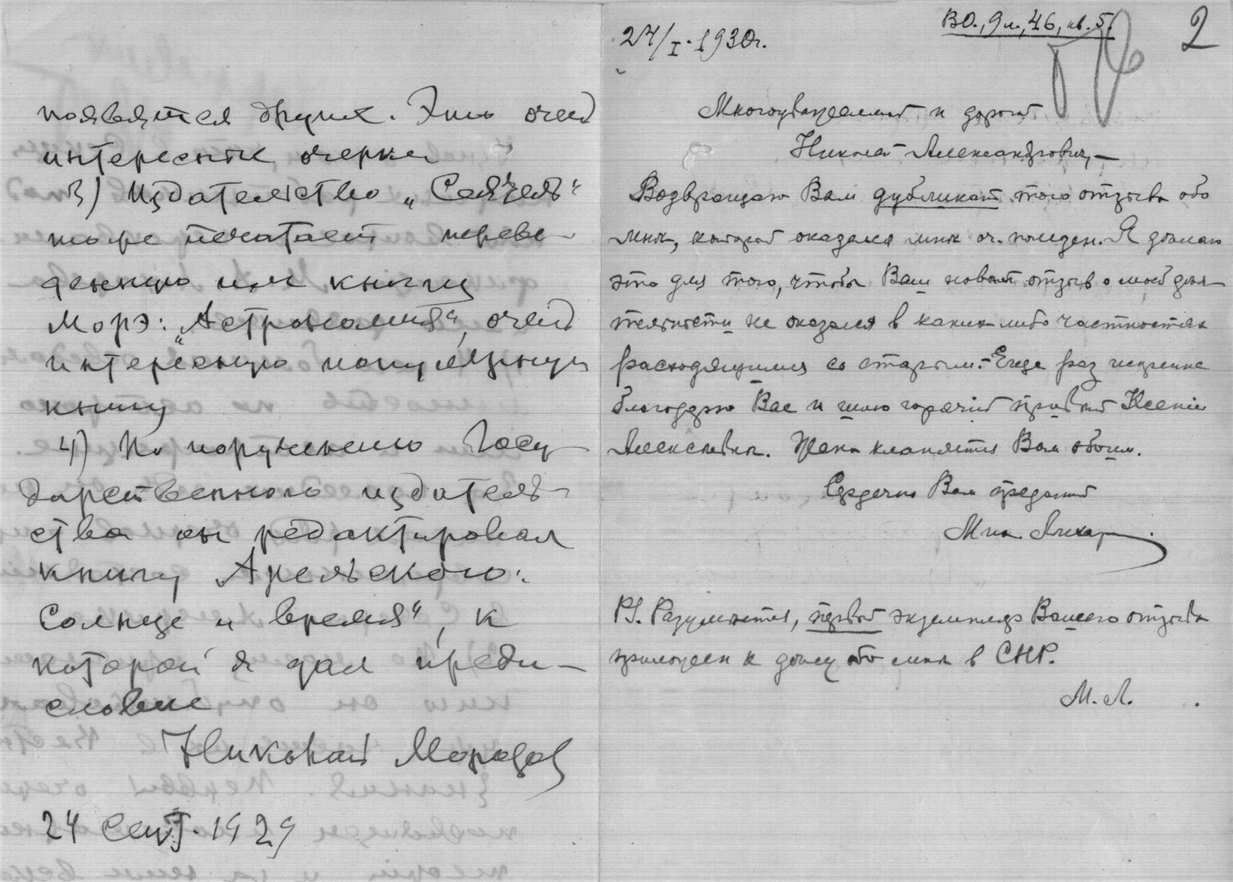 появятся другие. Это очень
интересные очерки
3) Издательство „Сеятель“
тоже печатает переве-
денную им книгу
Морэ: „Астрономия“, очень
интересную популярную
книгу
4) По поручению Госу-
дарственного издатель-
ства он редактировал
книгу Арельского:
Солнце и время“, к
которой я дал преди-
словие
Николай Морозов
24 Сент. 1929
27/I. 1930г.
ВО., 9 л., 46, кв. 5.
2
Многоуважаемый и дорогой
Николай Александрович, —
Возвращаю Вам дубликат того отзыва обо
мне, который оказался мне оч. полезен. Я делаю
это для того, чтобы Ваш новый отзыв о моей дея-
тельности не оказался в каких-либо частностях
расходящимся со старым. – Еще раз искренне
благодарю Вас и шлю горячий привет Ксении
Алексеевне. Жена кланяется Вам обоим.
Сердечно Вам преданный
P.S. Разумеется, первый экземпляр Вашего отзыва
приложен к делу обо мне в СНР.
М. Л.